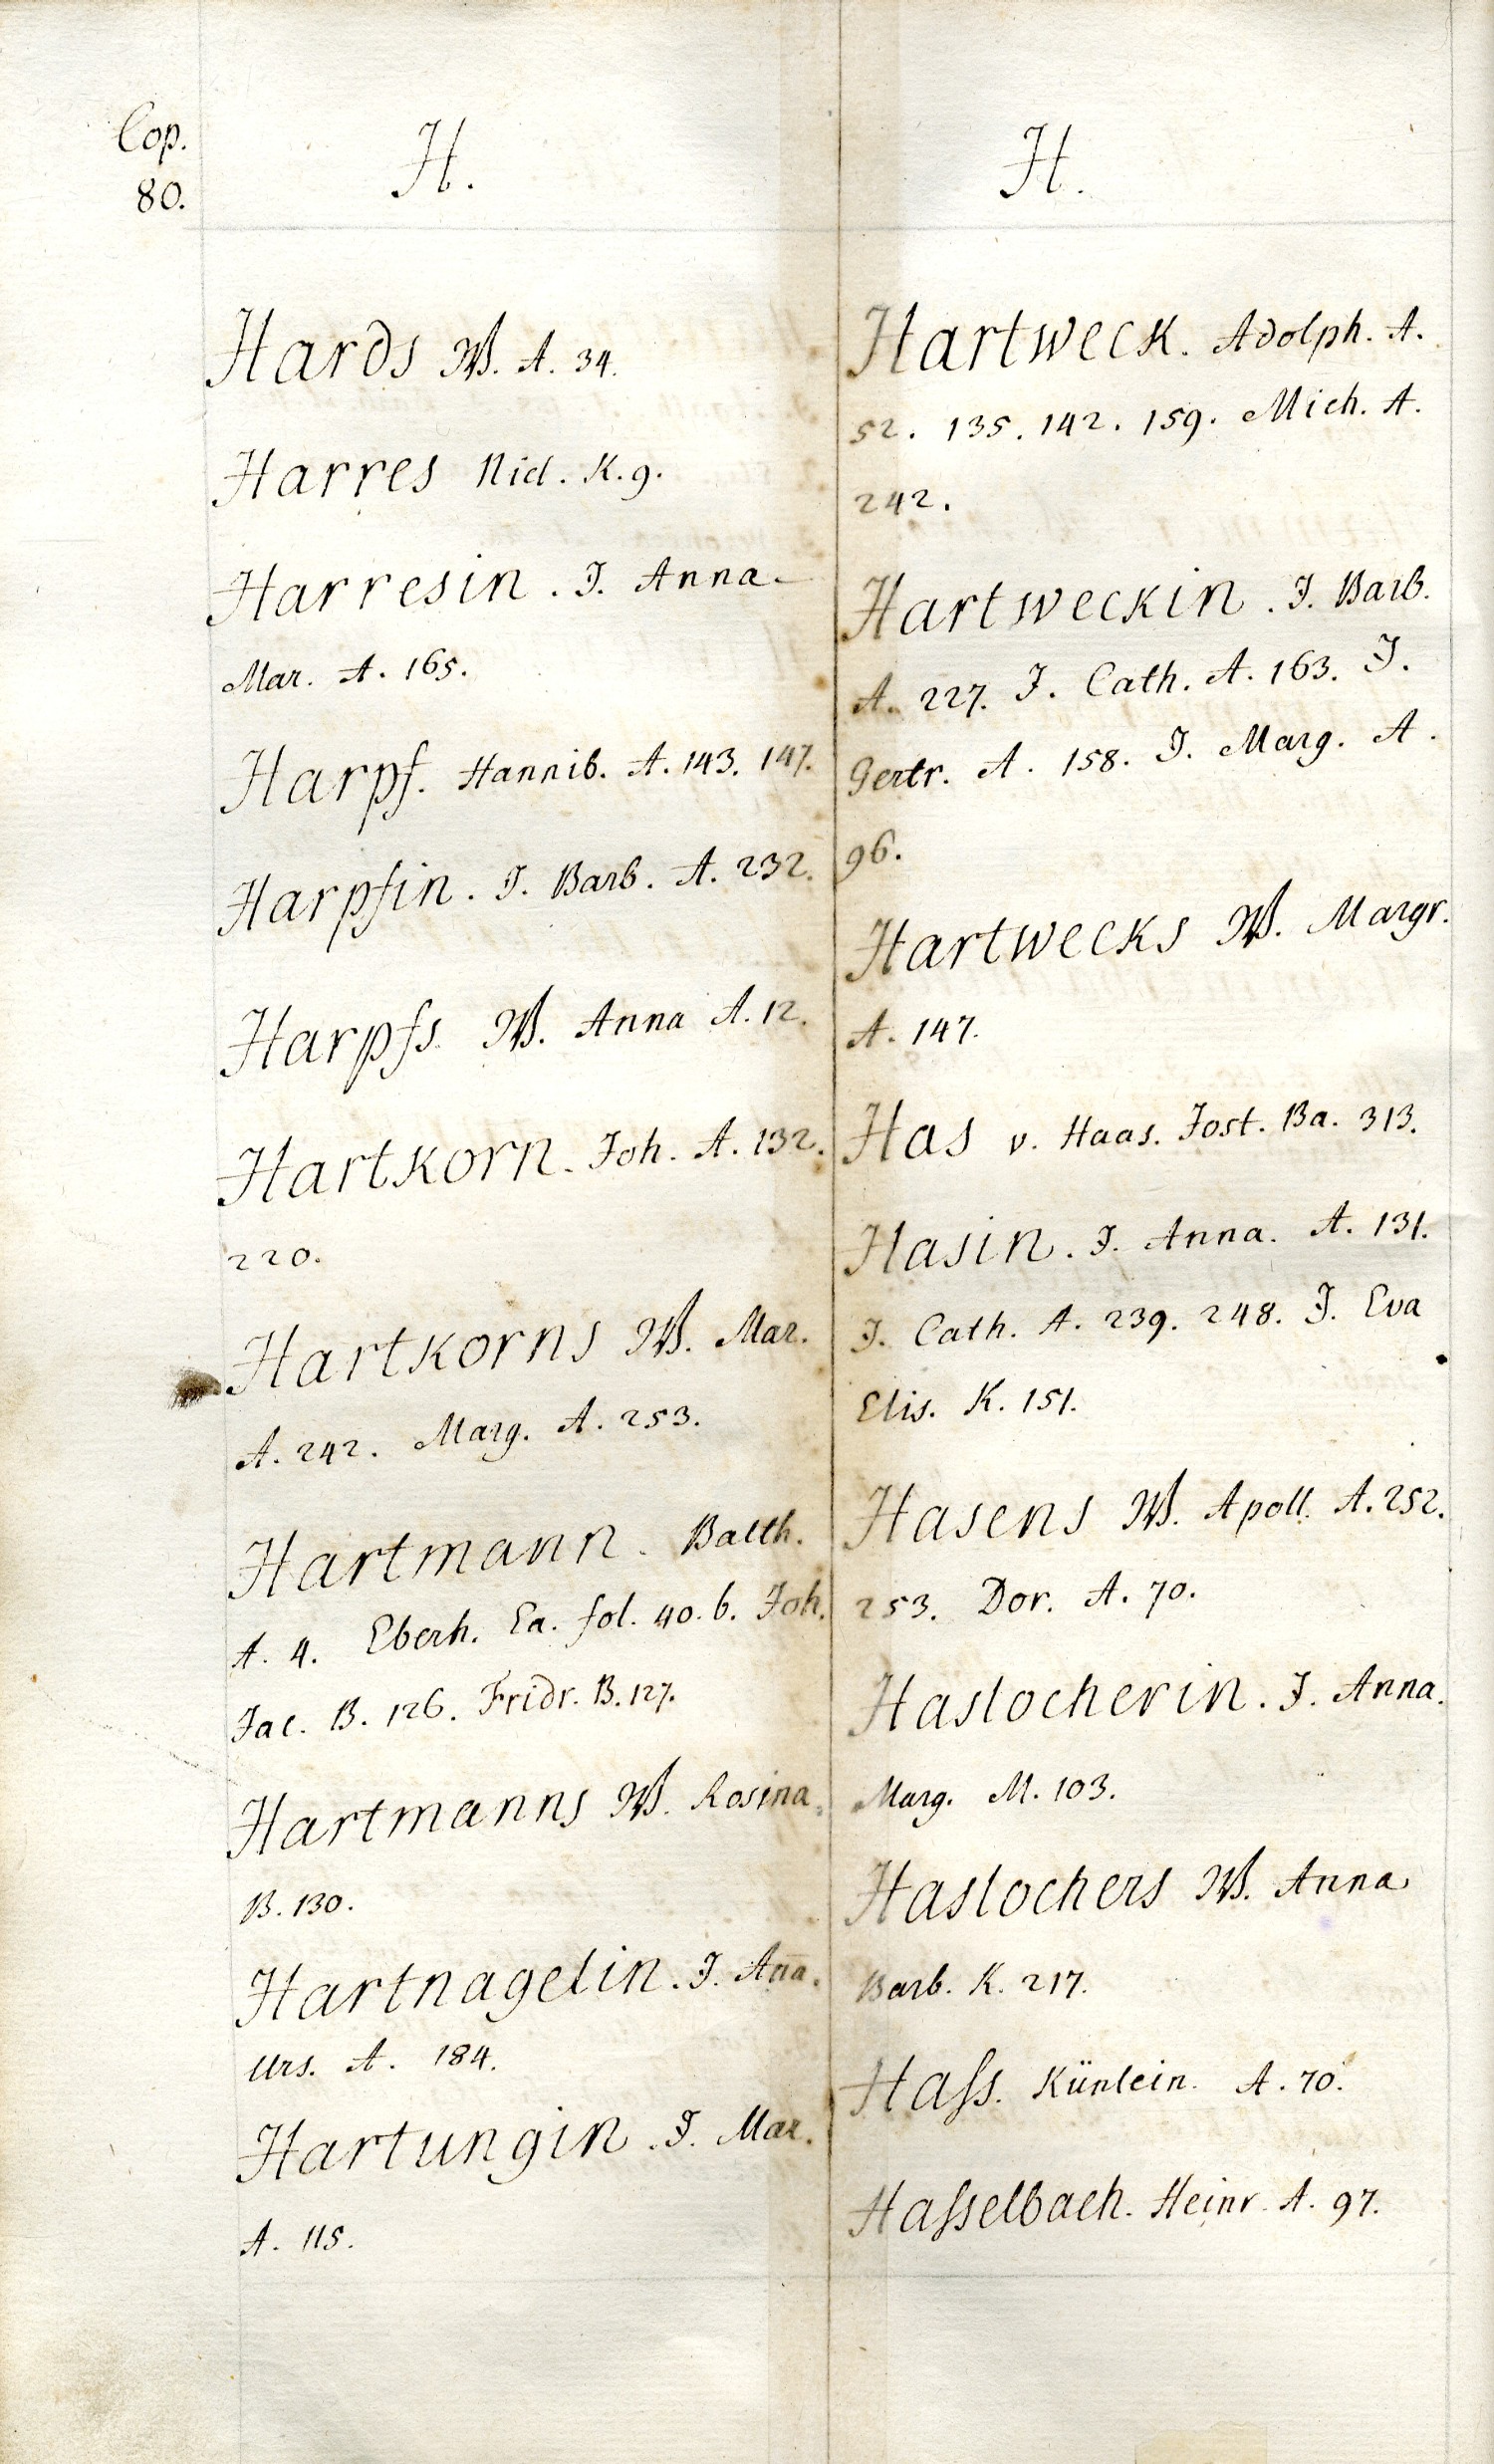 Cop.
80.
H.
Hards W. A. 34.
Harres Nicl. K. 9.
Harresin. J. Anna
Mar. A. 165.
Harpf. Hannib. A. 143. 147.
Harpfin. J. Barb. A. 232.
Harpfs W. Anna A. 12.
Hartkorn. Joh. A. 132.
220.
Hartkorns W. Mar.
A. 242. Marg. A. 253.
Hartmann. Balth.
A. 4. Eberh. Ea. fol. 40. b. Joh.
Jac. B. 126. Fridr. B. 127.
Hartmanns W. Rosina.
B. 130.
Hartnagelin. J. Ana.
Urs. A. 184.
Hartungin. J. Mar.
A. 115.
H.
Hartweck. Adolph. A.
52. 135. 142. 159. Mich. A.
242.
Hartweckin. J. Barb.
A. 227. J. Cath. A. 163. J.
Gertr. A. 158. J. Marg. A.
96.
Hartwecks W. Margr.
A. 147.
Has v. Haas. Jost. Ba. 313.
Hasin. J. Anna. A. 131.
J. Cath. A. 239. 248. J. Eva
Elis. K. 151.
Hasens W. Apoll. A. 252.
253. Dor. A. 70.
Haslocherin. J. Anna.
Marg. M. 103.
Haslochers W. Anna
Barb. K. 217.
Haſs. Künlein. A. 70.
Haſselbach. Heinr. A. 97.